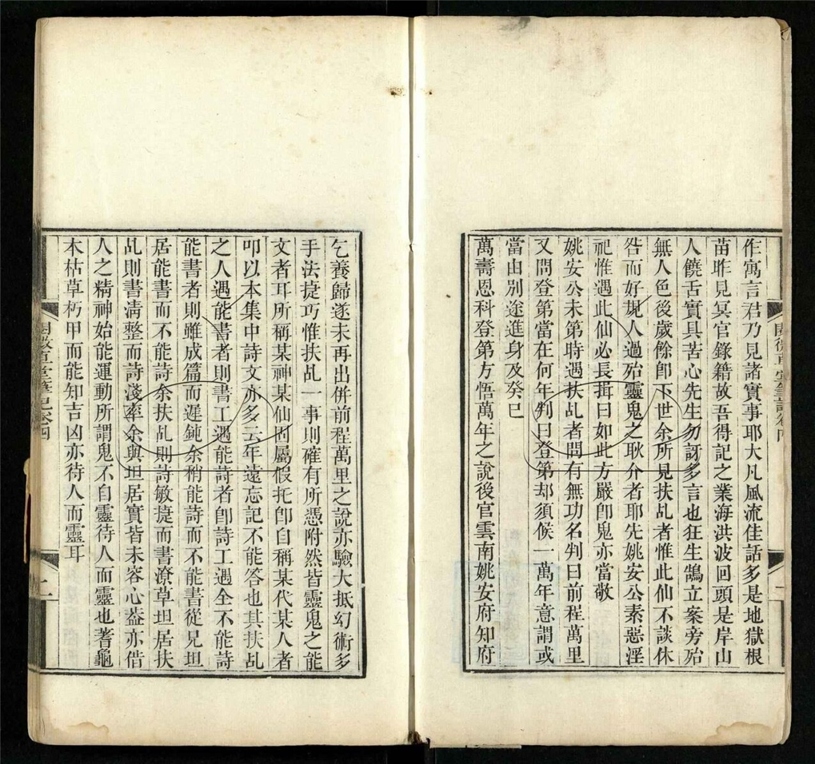 作寓言君乃見諸實事耶大凡風流佳話多是地獄根
苗昨見冥官錄籍故吾得記之業海洪波回頭是岸山
人饒舌實具苦心先生勿訝多言也狂生鵠立案旁殆
無人色後歲餘卽下世余所見扶乩者惟此仙不談休
咎而好規人過殆靈鬼之耿介者耶先姚安公素惡淫
祀惟遇此仙必長揖曰如此方嚴卽鬼亦當敬
姚安公未第時遇扶乩者問有無功名判曰前程萬里
又問登第當在何年判曰登第却須候一萬年意謂或
當由別途進身及癸巳
萬壽恩科登第方悟萬年之說後官雲南姚安府知府
乞養歸遂未再出併前程萬里之說亦驗大抵幻術多
手法捷巧惟扶乩一事則確有所憑附然皆靈鬼之能
文者耳所稱某神某仙固屬假托卽自稱某代某人者
叩以本集中詩文亦多云年遠忘記不能答也其扶乩
之人遇能書者則書工遇能詩者卽詩工遇全不能詩
能書者則雖成篇而遲鈍余稍能詩而不能書從兄坦
居能書而不能詩余扶乩則詩敏捷而書潦草坦居扶
乩則書清整而詩淺率余與坦居實皆未容心葢亦借
人之精神始能運動所謂鬼不自靈待人而靈也蓍龜
本枯草朽甲而能知吉凶亦待人而靈耳
閱微草堂筆記卷四
二